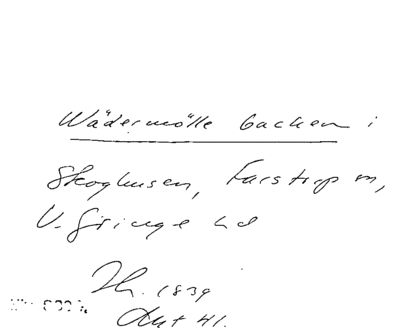 Wädermölle backen i
Skoghusen, Farstorp sn,
V. Göinge hd
Th. 1839
Akt 41.